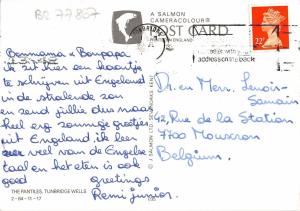 BR 77887
A SALMON
CAMERACOLOUR®
POST CARD
IN ENGLAND
22
address on the back
Bonmama + Bonpapa
ik zit hier een kaartje
te schrijven uit Engeland
in de stralende zon
en zend jullie dus naar
heel erg zonnige groetjes
uit Engeland ik leer
wel van de Engelse
taal en het eten is ook
goed
greetings
Remi junior
THE PANTILES, TUNBRIDGE WELLS
2-84-11-17
© J SALMON LTD SEVENOAKS KENT
Dr. en Mevr. Lenoir-
42 Rue de la Station
7700 Mouscron
Belgium.